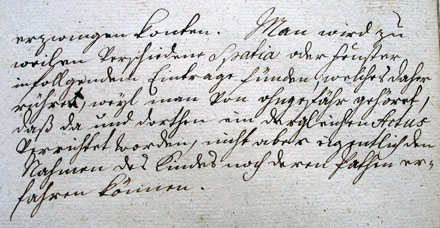 erzwingen konten. Man wird zu
weilen verschiedene Spatia oder fenster
in folgendem Eintrage finden, welches daher
rühret, weyl man von ohngefähr gehöret,
daß da und dorthen ein dergleichen Actus
verrichtet worden, nicht aber eigentlich den
Nahmen des Kindes noch deren Pathen er-
fahren können.